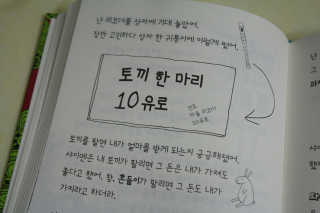 난 리코더를 상자에 기대 놓았어.
잠깐 고민하다 상자 한 귀퉁이에 이렇게 썼어.
토끼 한 마리
10유로
토끼를 팔면 내가 얼마를 받게 되는지 궁금해졌어.
샤이엔은 내 토끼가 팔리면 그 돈은 내가 가져도
좋다고 했어. 참, 흔들이가 팔리면 그 돈도 내가
가지라고 하더라.